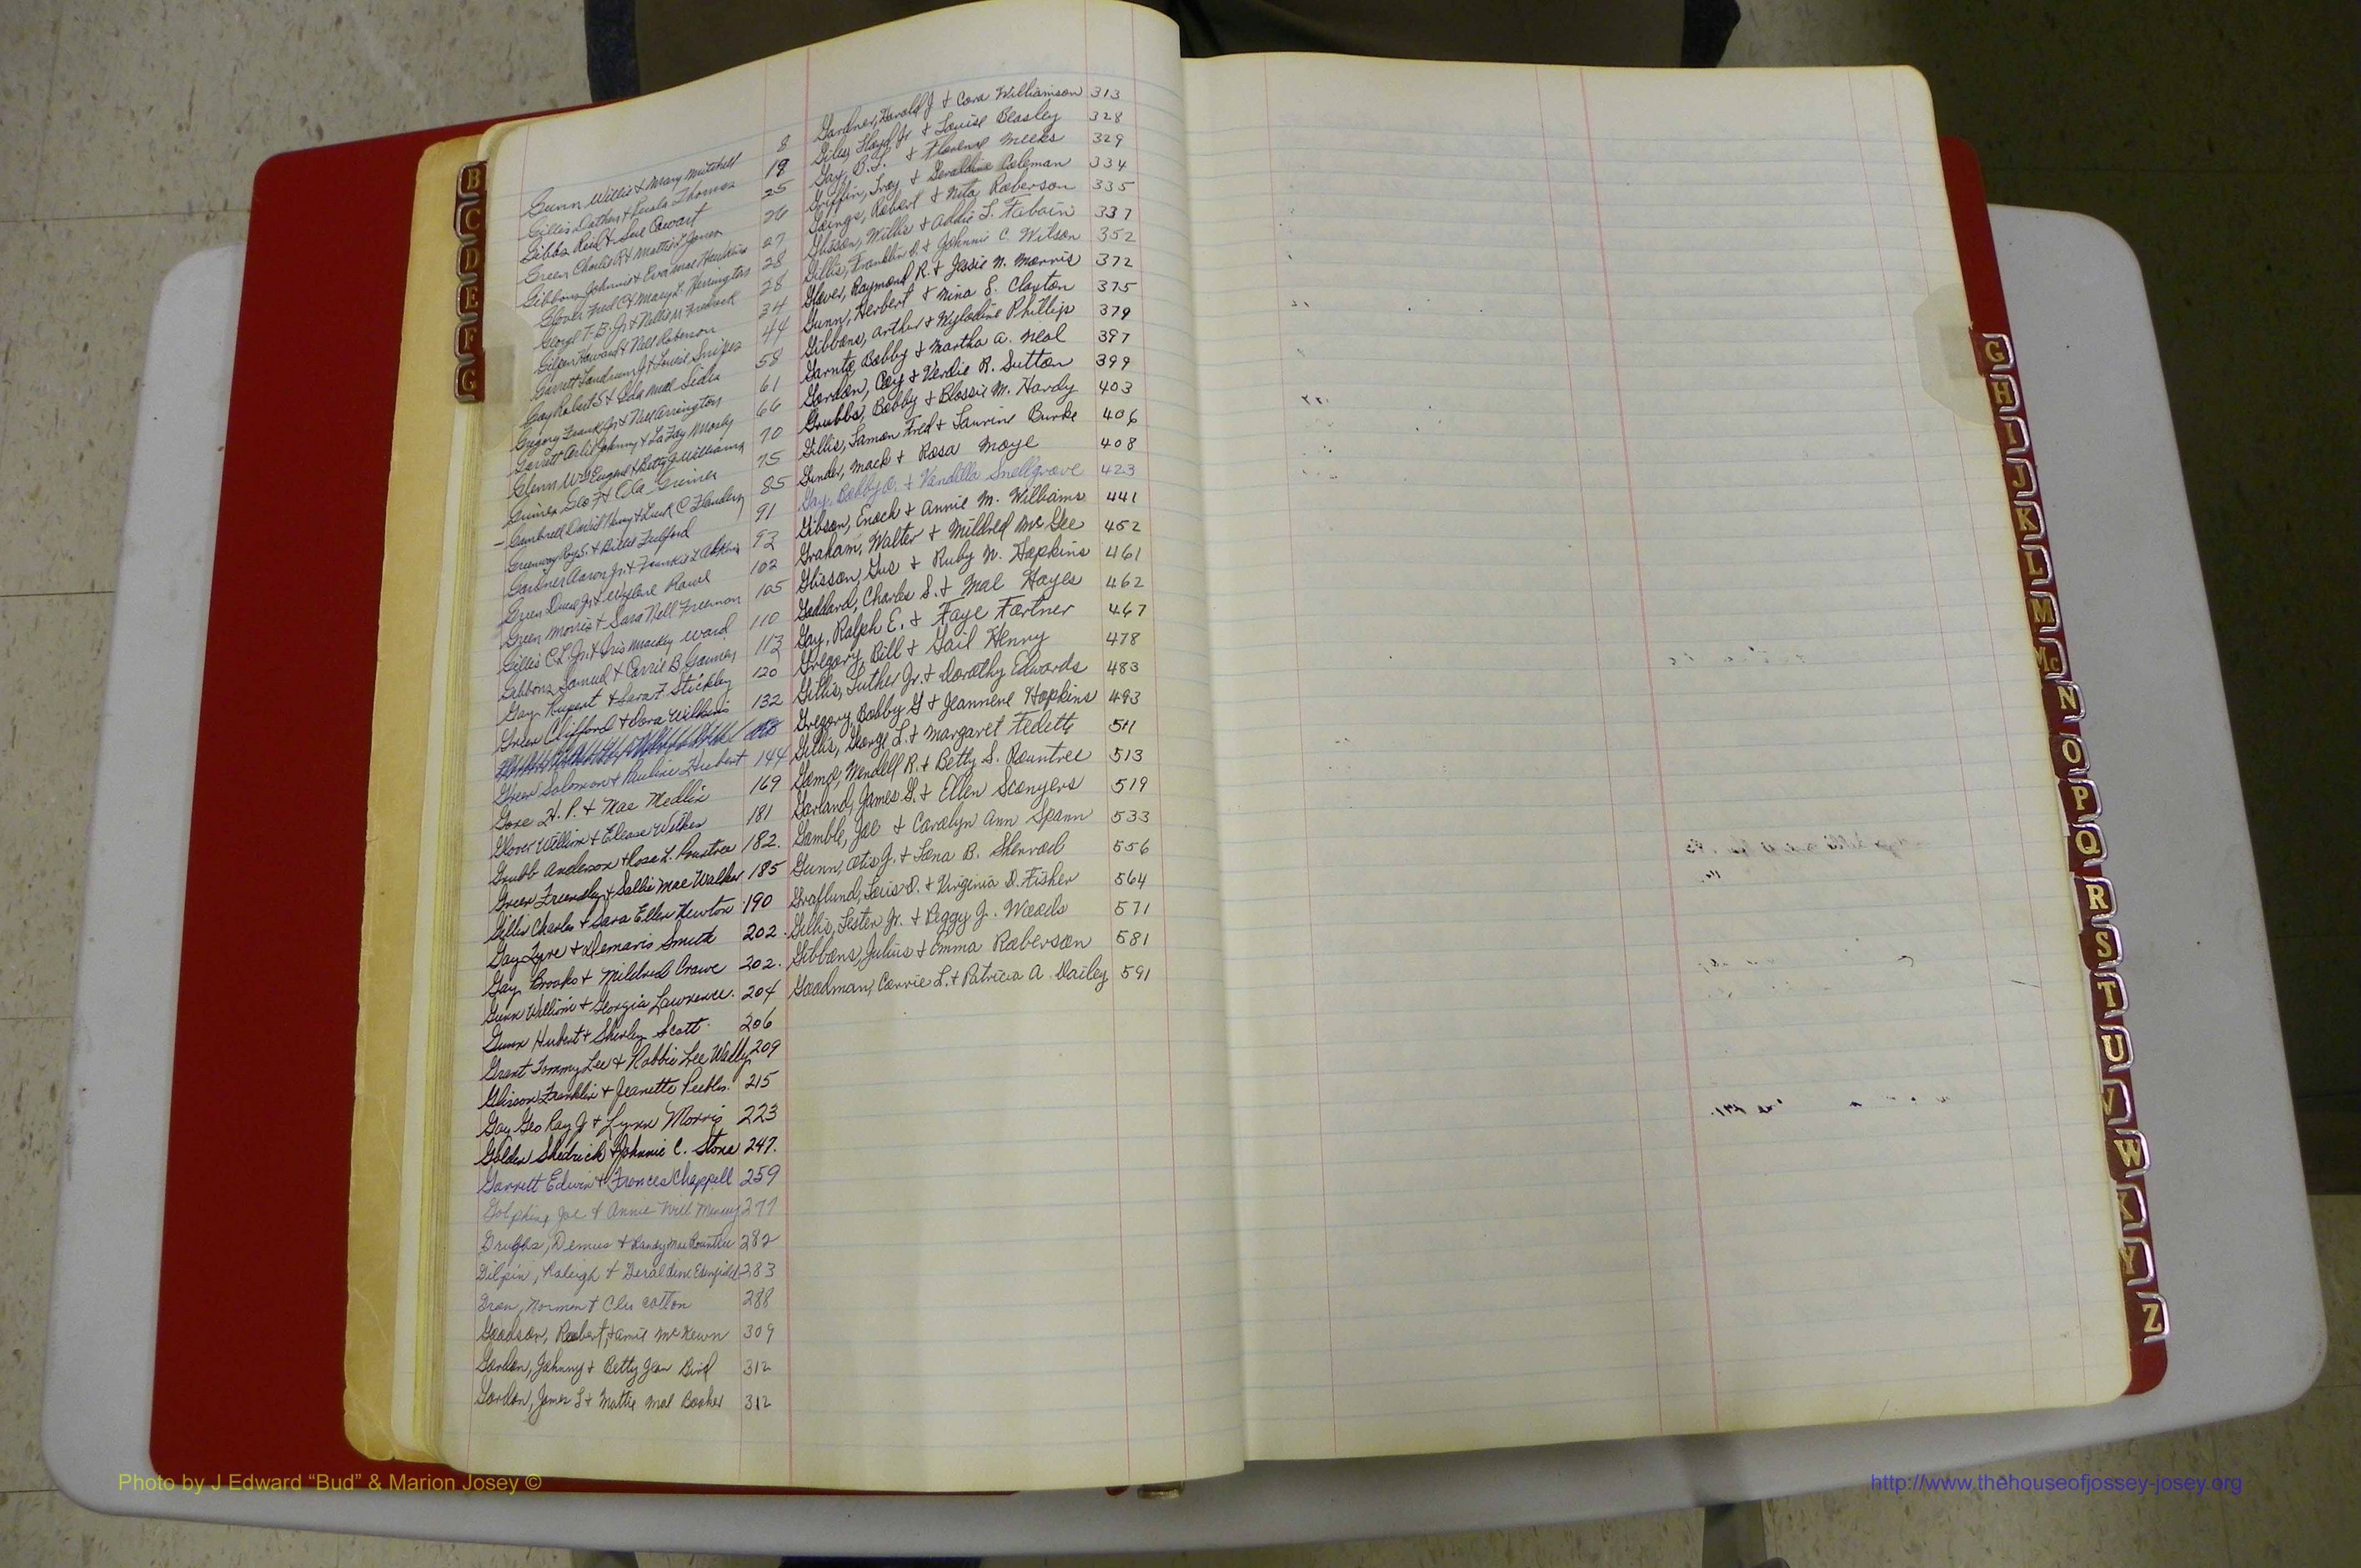 Gunn Willis & Mary Mitchell 8
Gillis Dothan & Thomas 19
Gibbs Reid & Sue Cowart 25
Green Charlie R & Mattie L Jones 26
Gibbons Johnnie & Eva Mae Hawkins 27
Glover Fred C & Mary L. Herrington 28
T. B. Jr & Nellie M 28
Gilpin Howard & Nell Roberson 34
Garrett Landrum J & Louise Snipes 44
Gay Robert S & Ida Mae Sides 58
Gregory Frank Jr & Nell Arrington 61
Garrett Arlie Johnny & LaFay Mosly 66
Glenn Wm Eugene & Betty J Williams 70
Geo F & Ola Greiner 75
Gambrell David Henry & C Flanders 85
Greenway Roy S. & Billie Fulford 91
Gardner Aaron Jr. & Frankie L Adkins 93
Green Jr & Wylene Rowe 102
Green Morris & Sara Nell Freeman 105
Gillis C L Jr & Iris Mackey Ward 110
Gibbons Samuel & Carrie B 113
Gay Rupert & Sara F. Stickley 120
Green Clifford & Dora Wilkins 132
Green Solomon & Pauline Hubert 144
H. P. & Mae Medlin 169
Glover William & Elease Wilkes 181
Grubb Anderson & Rosa L. Rountree 182.
Green Friendly & Sallie Mae Walker 185
Gillis Charles & Sara Ellen Newton 190
Gay Lyre & Demaris Smith 202.
Gay Brooks & Mildred Crowe 202.
Gunn William & Georgia Lawrence. 204
Gunn Hubert & Shirley Scott. 206
Grant Tommy Lee & Robbie Lee Wadly 209
Glisson Franklin & Jeanette Peebles. 215
Gay Geo Ray J & Lynn Morris 223
Golden Shedrick & Johnnie C. Stone 247.
Garrett Edwin & Frances Chappell 259
Golphin, Joe & Annie Will 277
Grubbs, Demus & Mae Rountree 282
Gilpin, Raleigh & Geraldine Edenfield 283
Norman & Cleo Cotton 288
Goodson, Robert & McKewn 309
Gordon, Johnny & Betty Jean Bird 312
Gordon, James L & Mattie Mae Booker 312
Gardner, Harold J & Cora Williamson 313
Giles, Floyd Jr & Louise Beasley 328
Gay, B.F. & Florence Meeks 329
Griffin, Troy & Geraldine Coleman 334
Robert & Neta Roberson 335
Glisson, Willis & Addie L. Fabain 337
Gillis, Franklin D. & Johnnie C. Wilson 352
Glover, Raymond R. & Jessie N. Morris 372
Gunn, Herbert & Nina S. Claxton 375
Gibbons, Arthur & Wylodine Phillips 379
Garnto, Bobby & Martha A. Neal 397
Gordon, Coy & Verdie R. Sutton 399
Grubbs, Bobby & Blossie M. Hardy 403
Gillis, Lamon Fred & Laurine Burke 406
Mack & Rosa Moye 408
Gay, Bobby O. & Vandella Snellgrove 423
Gibson, Enoch & Annie M. Williams 441
Graham, Walter & Mildred McGee 452
Glisson, Gus & Ruby N. Hopkins 461
Goddard, Charles S. & Mae Hayes 462
Gay, Ralph E. & Faye Fortner 467
Gregory, Bill & Gail Henry 478
Gillis, Luther Jr. & Dorothy Edwards 483
Gregory, Bobby G & Jeannene Hopkins 493
Gillis, George L. & Margaret Fedette 511
Wendell R. & Betty S. Rountree 513
Garland, James G. & Ellen Sconyers 519
Gamble, Joe & Carolyn Ann Spann 533
Gunn, Otis J. & Lona B. Sherrod 556
Graflund, Loris D. & Virginia D. Fisher 564
Gillis, Lester Jr. & Peggy J. Woods 571
Gibbons, Julius & Emma Roberson 581
Goodman, Corrie L. & Patricia A. Dailey 591
B
C
D
E
F
G
G
H
I
J
K
L
M
Mc
N
O
P
Q
R
S
T
U
V
W
X
Y
Z
Photo by J Edward “Bud” & Marion Josey ©
http://www.thehouseofjossey-josey.org